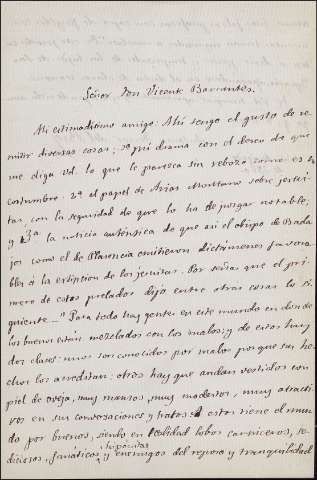 Señor Don Vicente Barrantes.
Mi estimadisimo amigo: Ahi tengo el gusto de re-
mitir diversas cosas; 1º mi drama con el deseo de que
me diga vd. lo que le parezca sin rebozo como es su
costumbre: 2º el papel de Arias Montano sobre jesui-
tas con la seguridad de que lo ha de juzgar notable;
y 3ª la noticia auténtica de que asi el obispo de Bada-
joz como el de Plasencia emitieron dictámenes favora-
bles á la extincion de los jesuitas. Por señas que el pri-
mero de estos prelados dijo entre otras cosas lo si-
guiente... "Para todo hay gentes en este mundo en donde
los buenos estan mezclados con los malos; y de estos hay
dos clases: unos son conocidos por malos porque sus he-
chos los acreditan: otros hay que andan vestidos con
piel de oveja, muy mansos, muy modestos, muy atracti-
vos en sus conversaciones y tratos; á estos tiene el mun-
do por buenos, siendo en realidad lobos carniceros, se-
diciosos, fanáticos, hipócritas y enemigos del reposo y tranquilidad